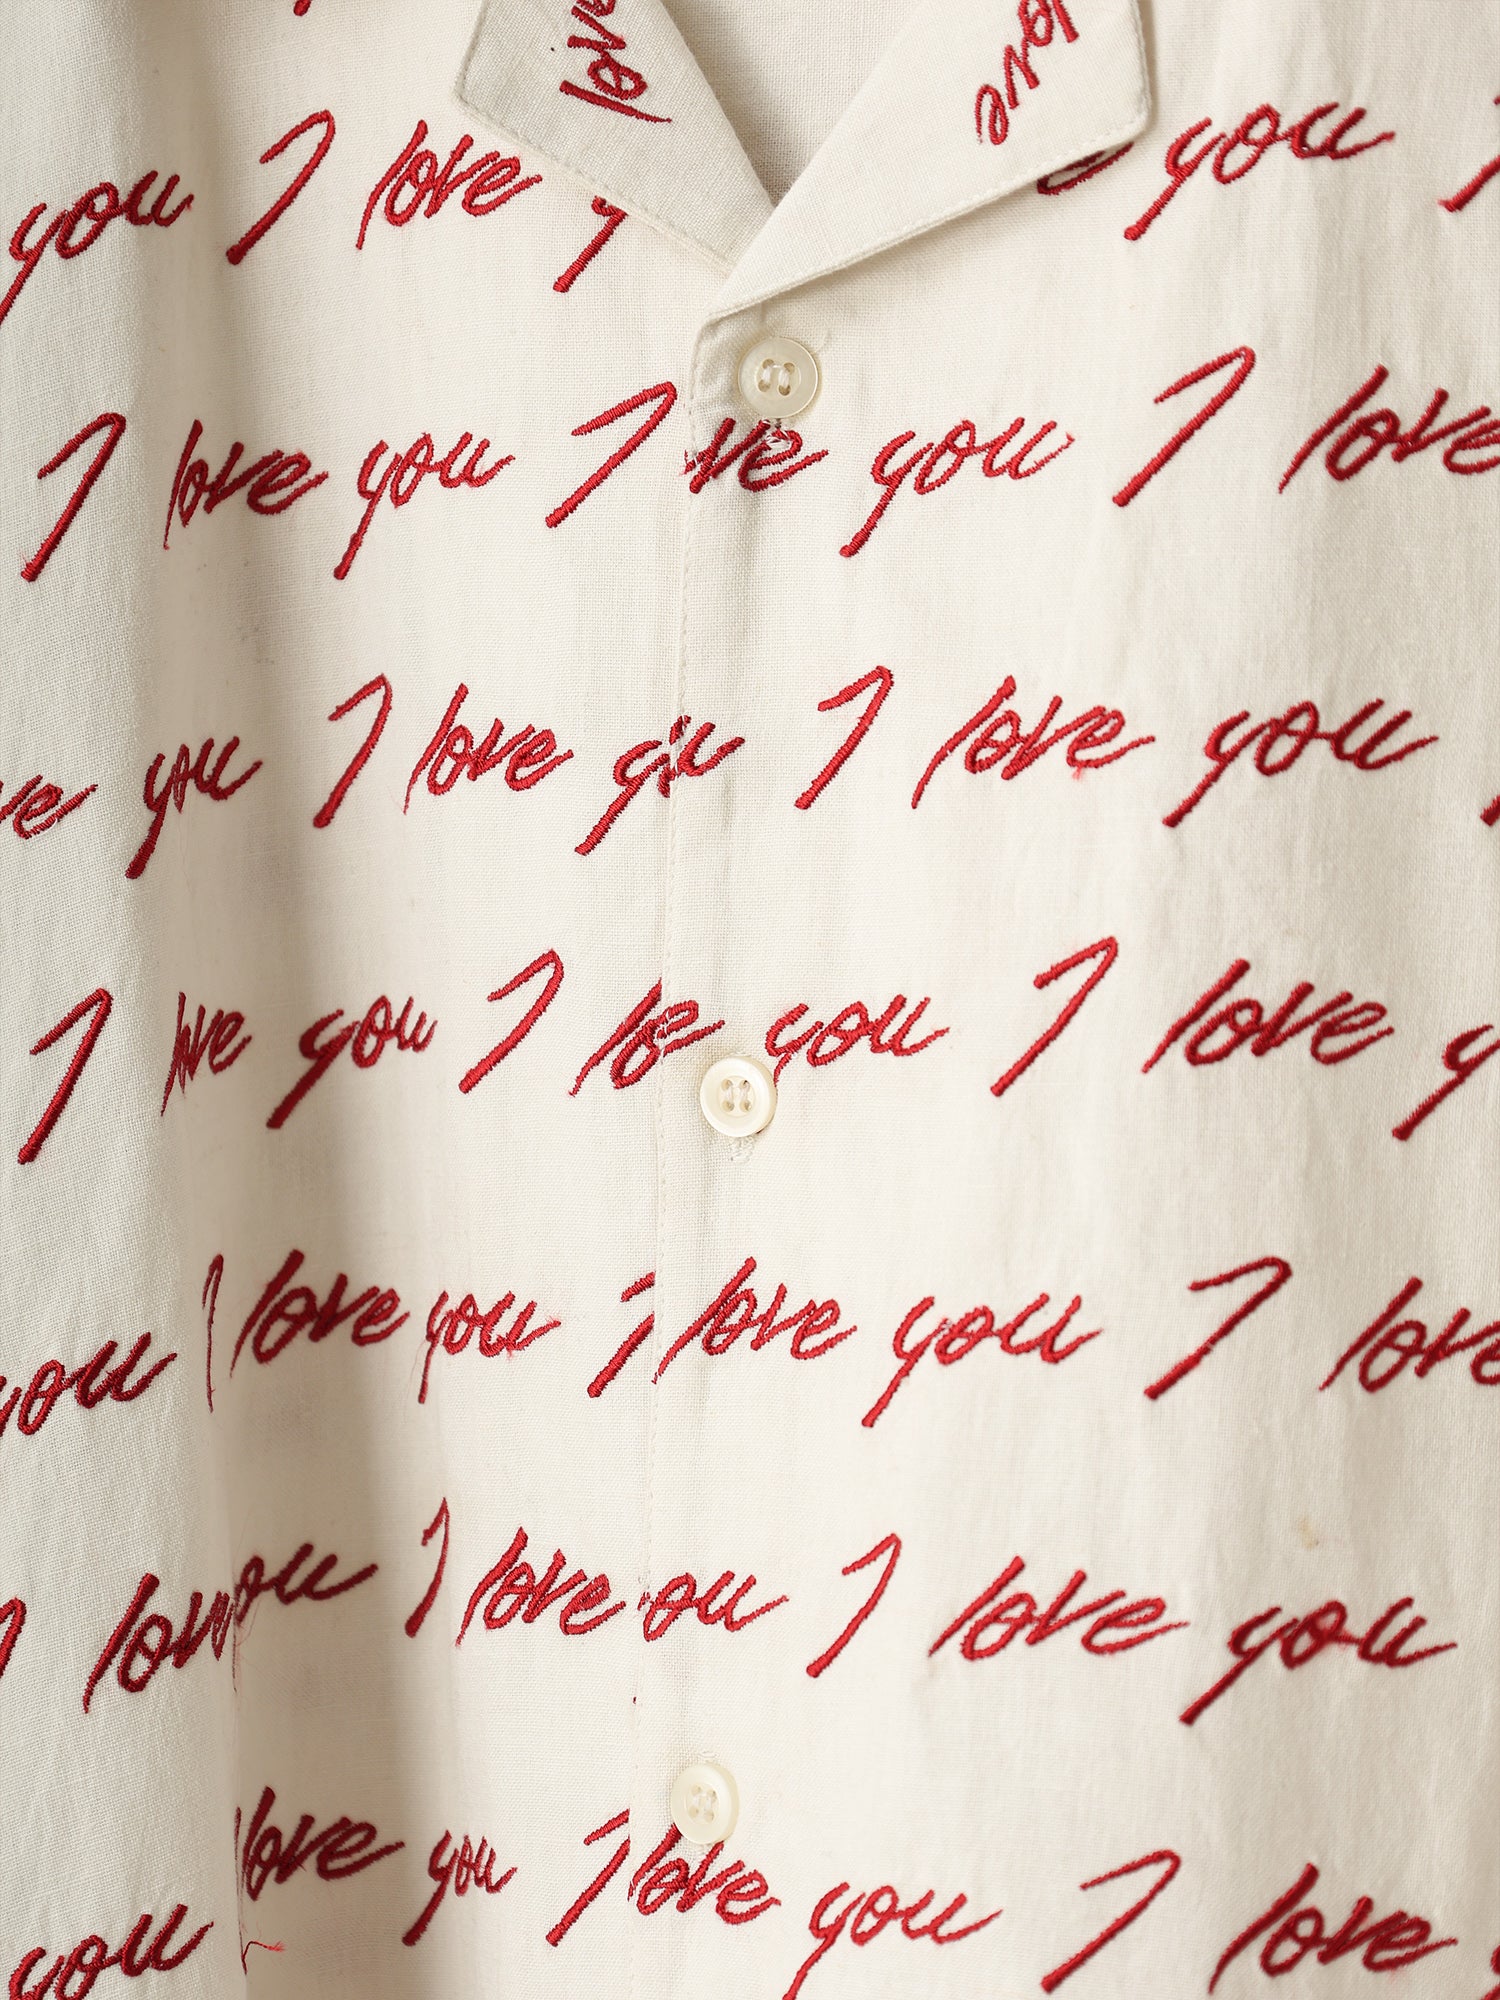 love love
you I love y you
I love you I ve you I love
ve you I love you I love you
I love you I lo e you I love y
you I love you I love you I love
I love ou I love ou I love you
love you I love you I love
you